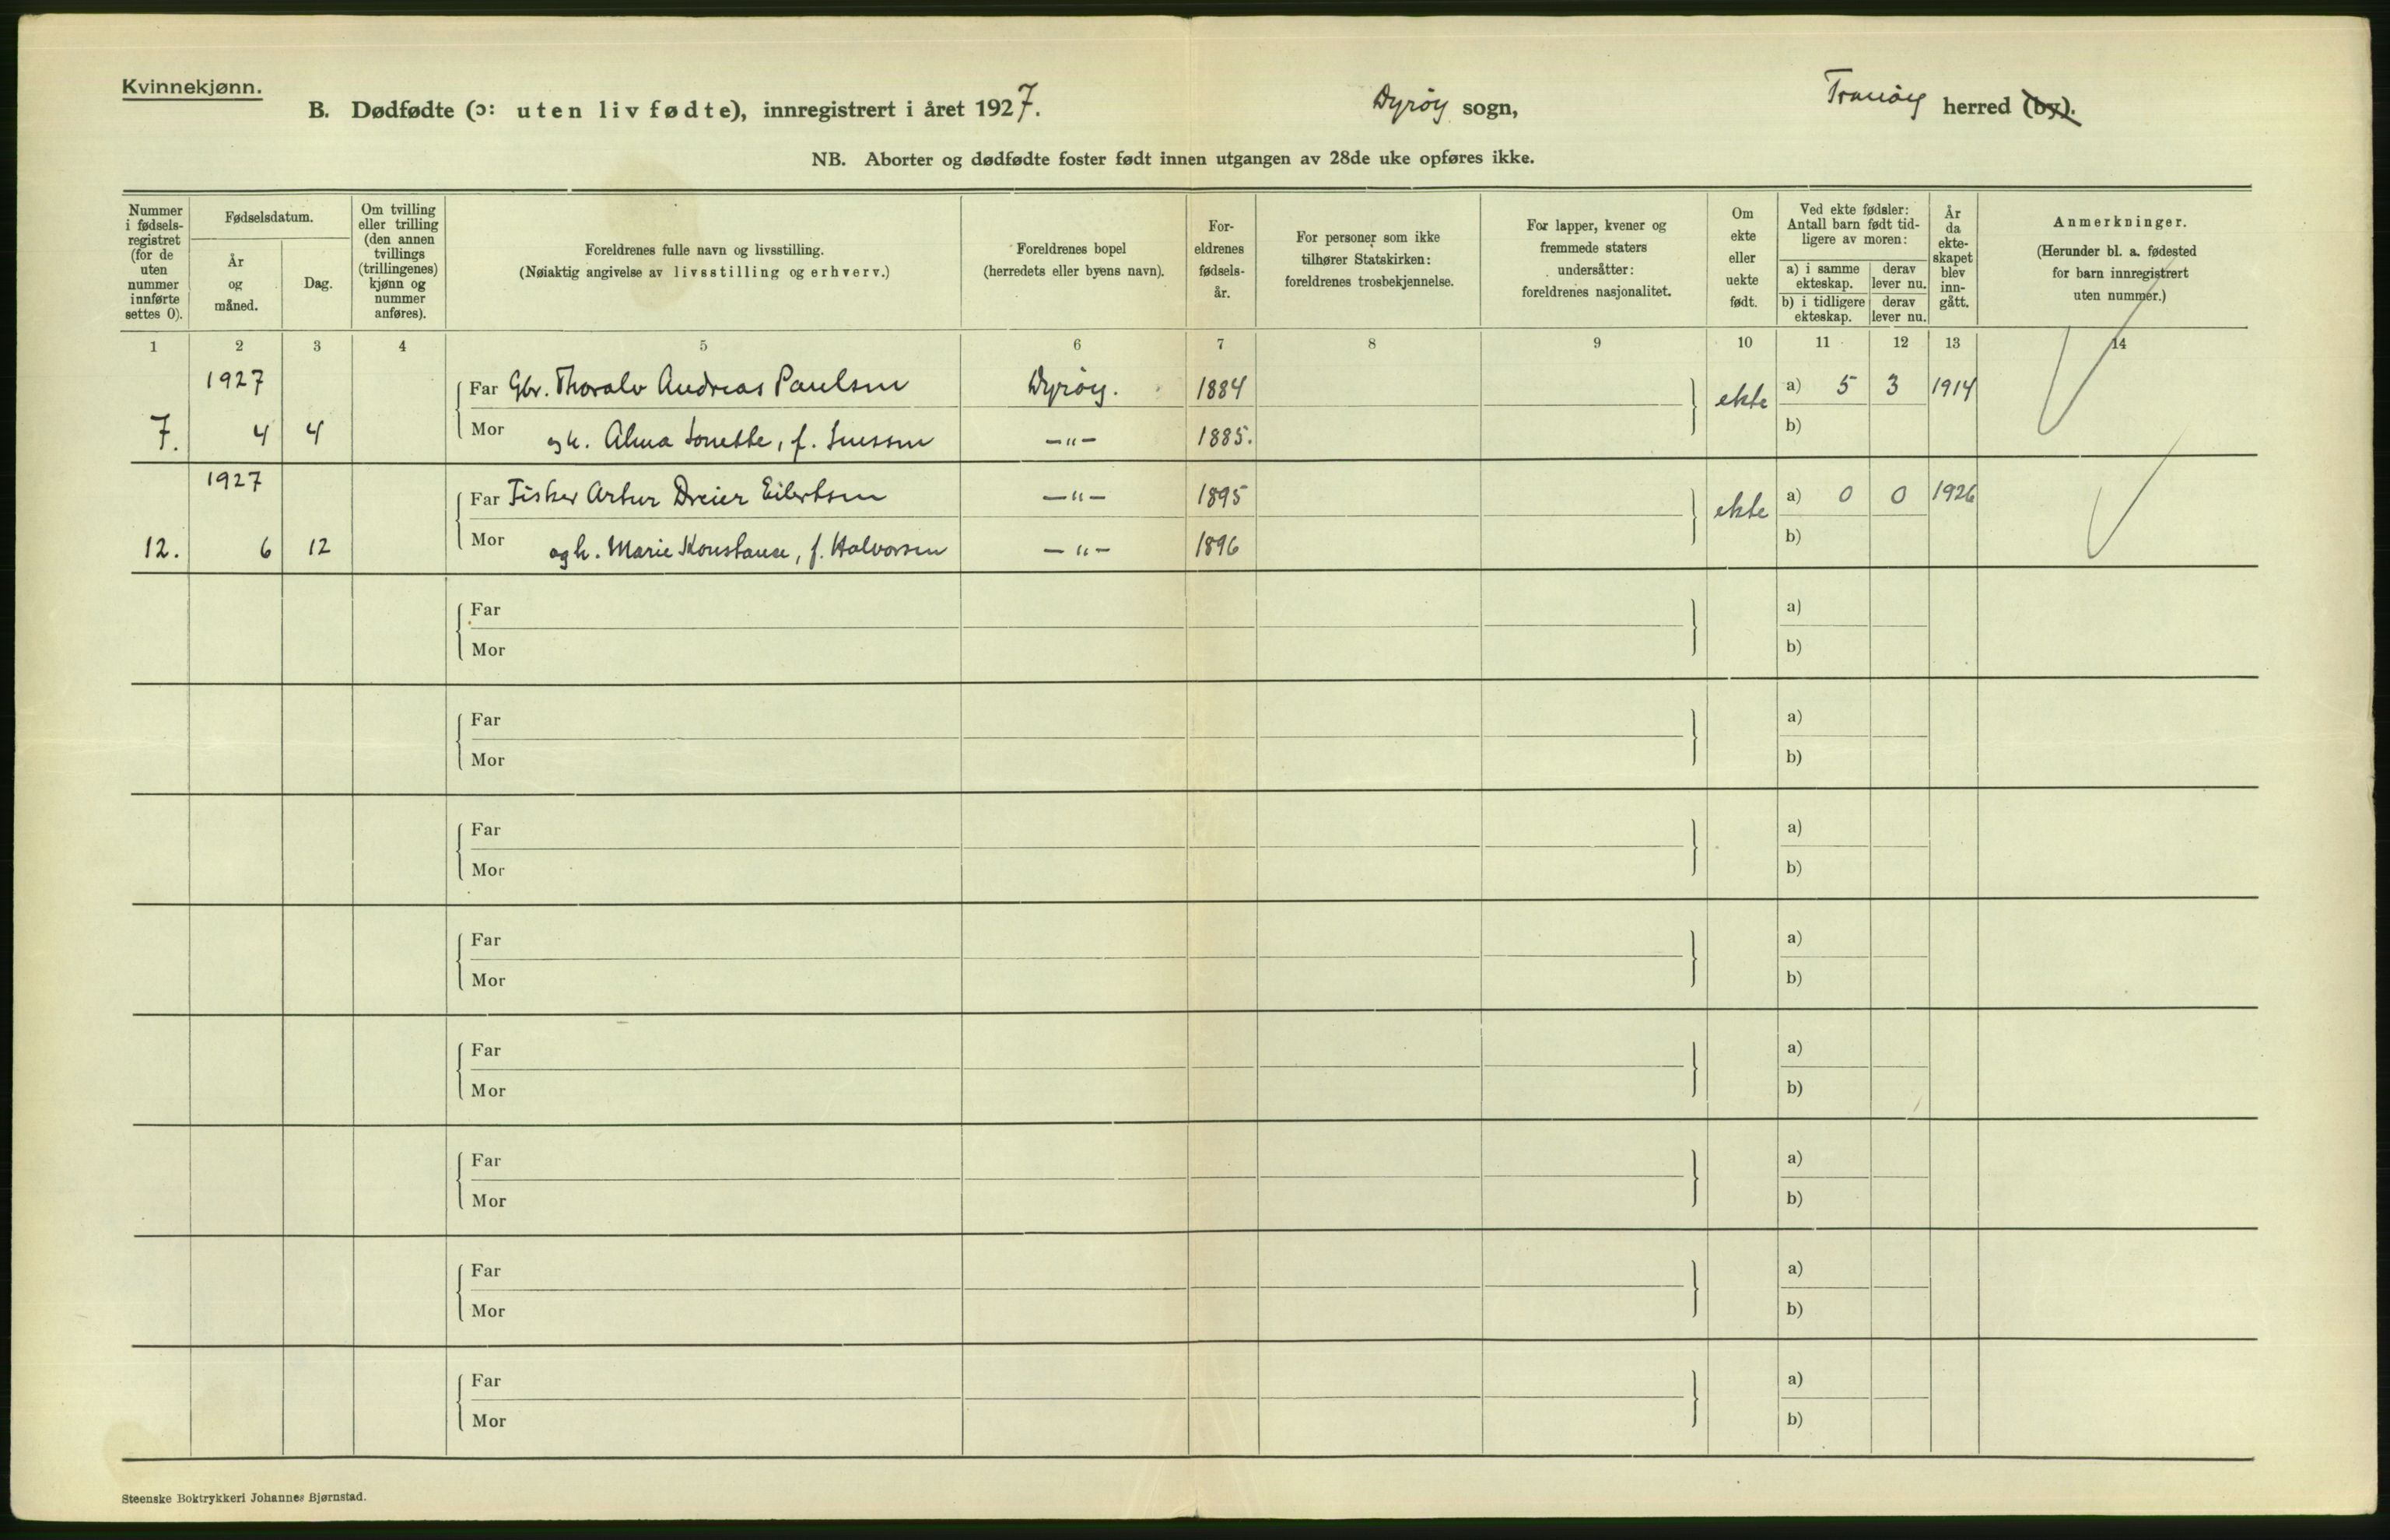 Kvinnekjønn.
B. Dødfødte (ɔ: uten liv fødte), innregistrert i året 1927. Dyrøy sogn, Tranøy herred (by).
NB. Aborter og dødfødte foster født innen utgangen av 28de uke opføres ikke.
Nummer i fødsels-registret (for de uten nummer innførte settes 0).
Fødselsdatum.
År og måned.
Dag.
Om tvilling eller trilling (den annen tvillings (trillingenes) kjønn og nummer anføres).
Foreldrenes fulle navn og livsstilling.
(Nøiaktig angivelse av livsstilling og erhverv.)
Foreldrenes bopel
(herredets eller byens navn).
For-eldrenes fødsels-år.
For personer som ikke tilhører Statskirken: foreldrenes trosbekjennelse.
For lapper, kvener og fremmede staters undersåtter: foreldrenes nasjonalitet.
Om ekte eller uekte født.
Ved ekte fødsler: Antall barn født tid-ligere av moren:
a) i samme ekteskap.
derav lever nu.
b) i tidligere ekteskap.
derav lever nu.
År da ekte-skapet blev inn-gått.
Anmerkninger.
(Herunder bl. a. fødested for barn innregistrert uten nummer.)
1 2 3 4 5 6 7 8 9 10 11 12 13 14
1927
Far Gbr. Thoralv Andreas Paulsen Dyrøy. 1884 ekte a) 5 3 1914
7. 4 4 Mor og h. Alma f. —"— 1885. b)
1927
Far Fisker Artur Dreier Eilertsen —"— 1895 ekte a) 0 0 1926
12. 6 12 Mor og h. Marie Konstanse, f. Halvorsen —"— 1896 b)
Far a)
Mor b)
Far a)
Mor b)
Far a)
Mor b)
Far a)
Mor b)
Far a)
Mor b)
Far a)
Mor b)
Far a)
Mor b)
Far a)
Mor b)
Steenske Boktrykkeri Johannes Bjørnstad.